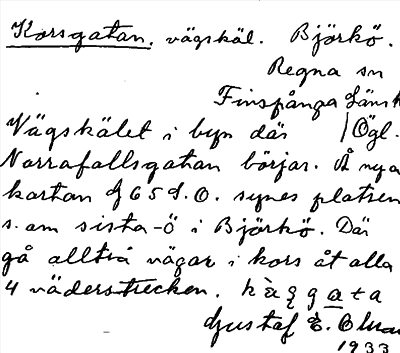 Korsgatan. vägskäl. Björkö.
Regna sn
Finspånga Länsh
Vägskälet i byn där /Ögl.
Norrafallsgatan börjar. Å nya
kartan J 65 S.O. synes platsen
s. om sista -ö i Björkö. Där
gå alltså vägar i kors åt alla
4 väderstrecken.
Gustaf E.
1933